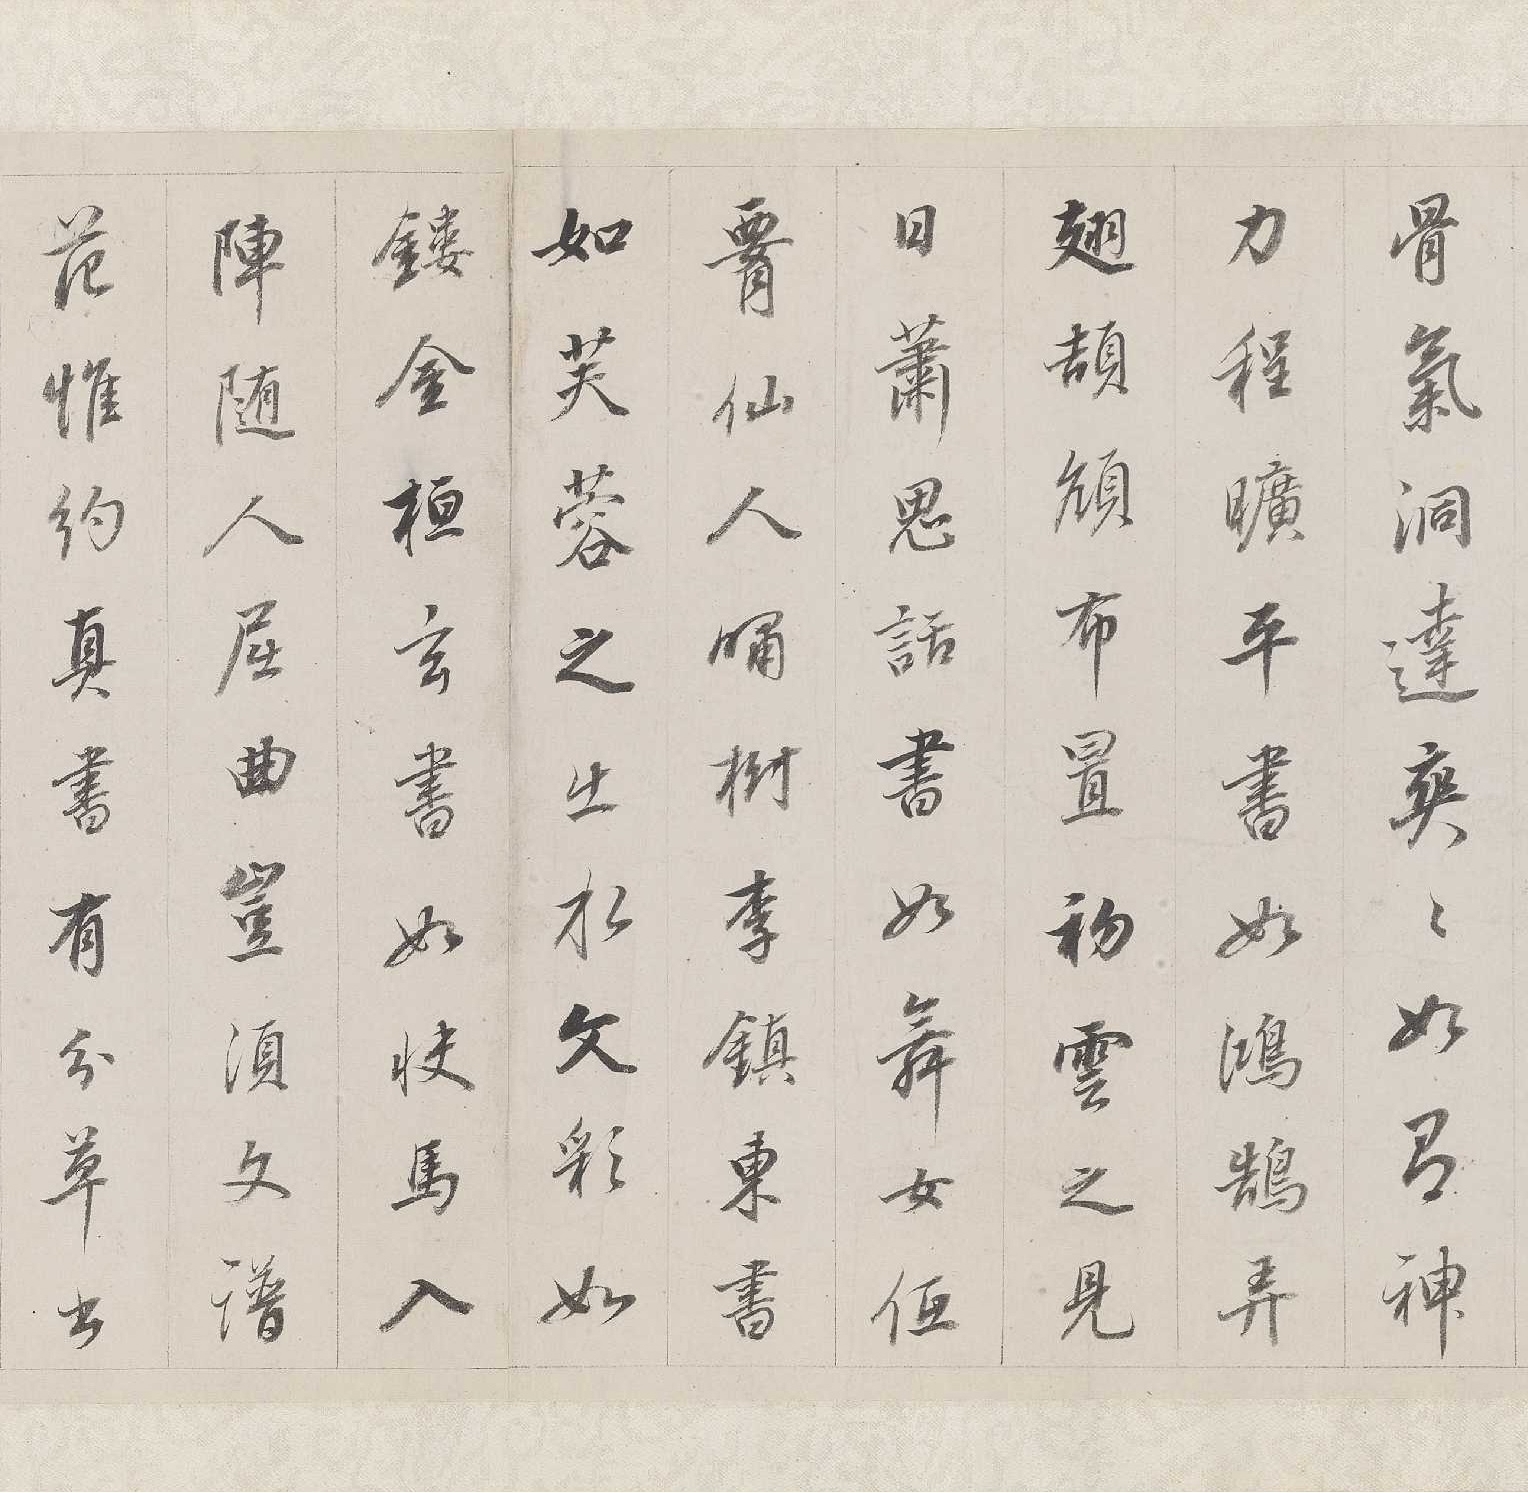 骨氣洞達爽〻如有神
力程曠平書如鴻鵠弄
翅頡頏布置初雲之見
日蕭思話書如舞女低
𦝫仙人嘯樹李鎮東書
如芙蓉之出水文彩如
鏤金桓玄書如快馬入
陣隨人屈曲豈須文譜
范惟約真書有分草書